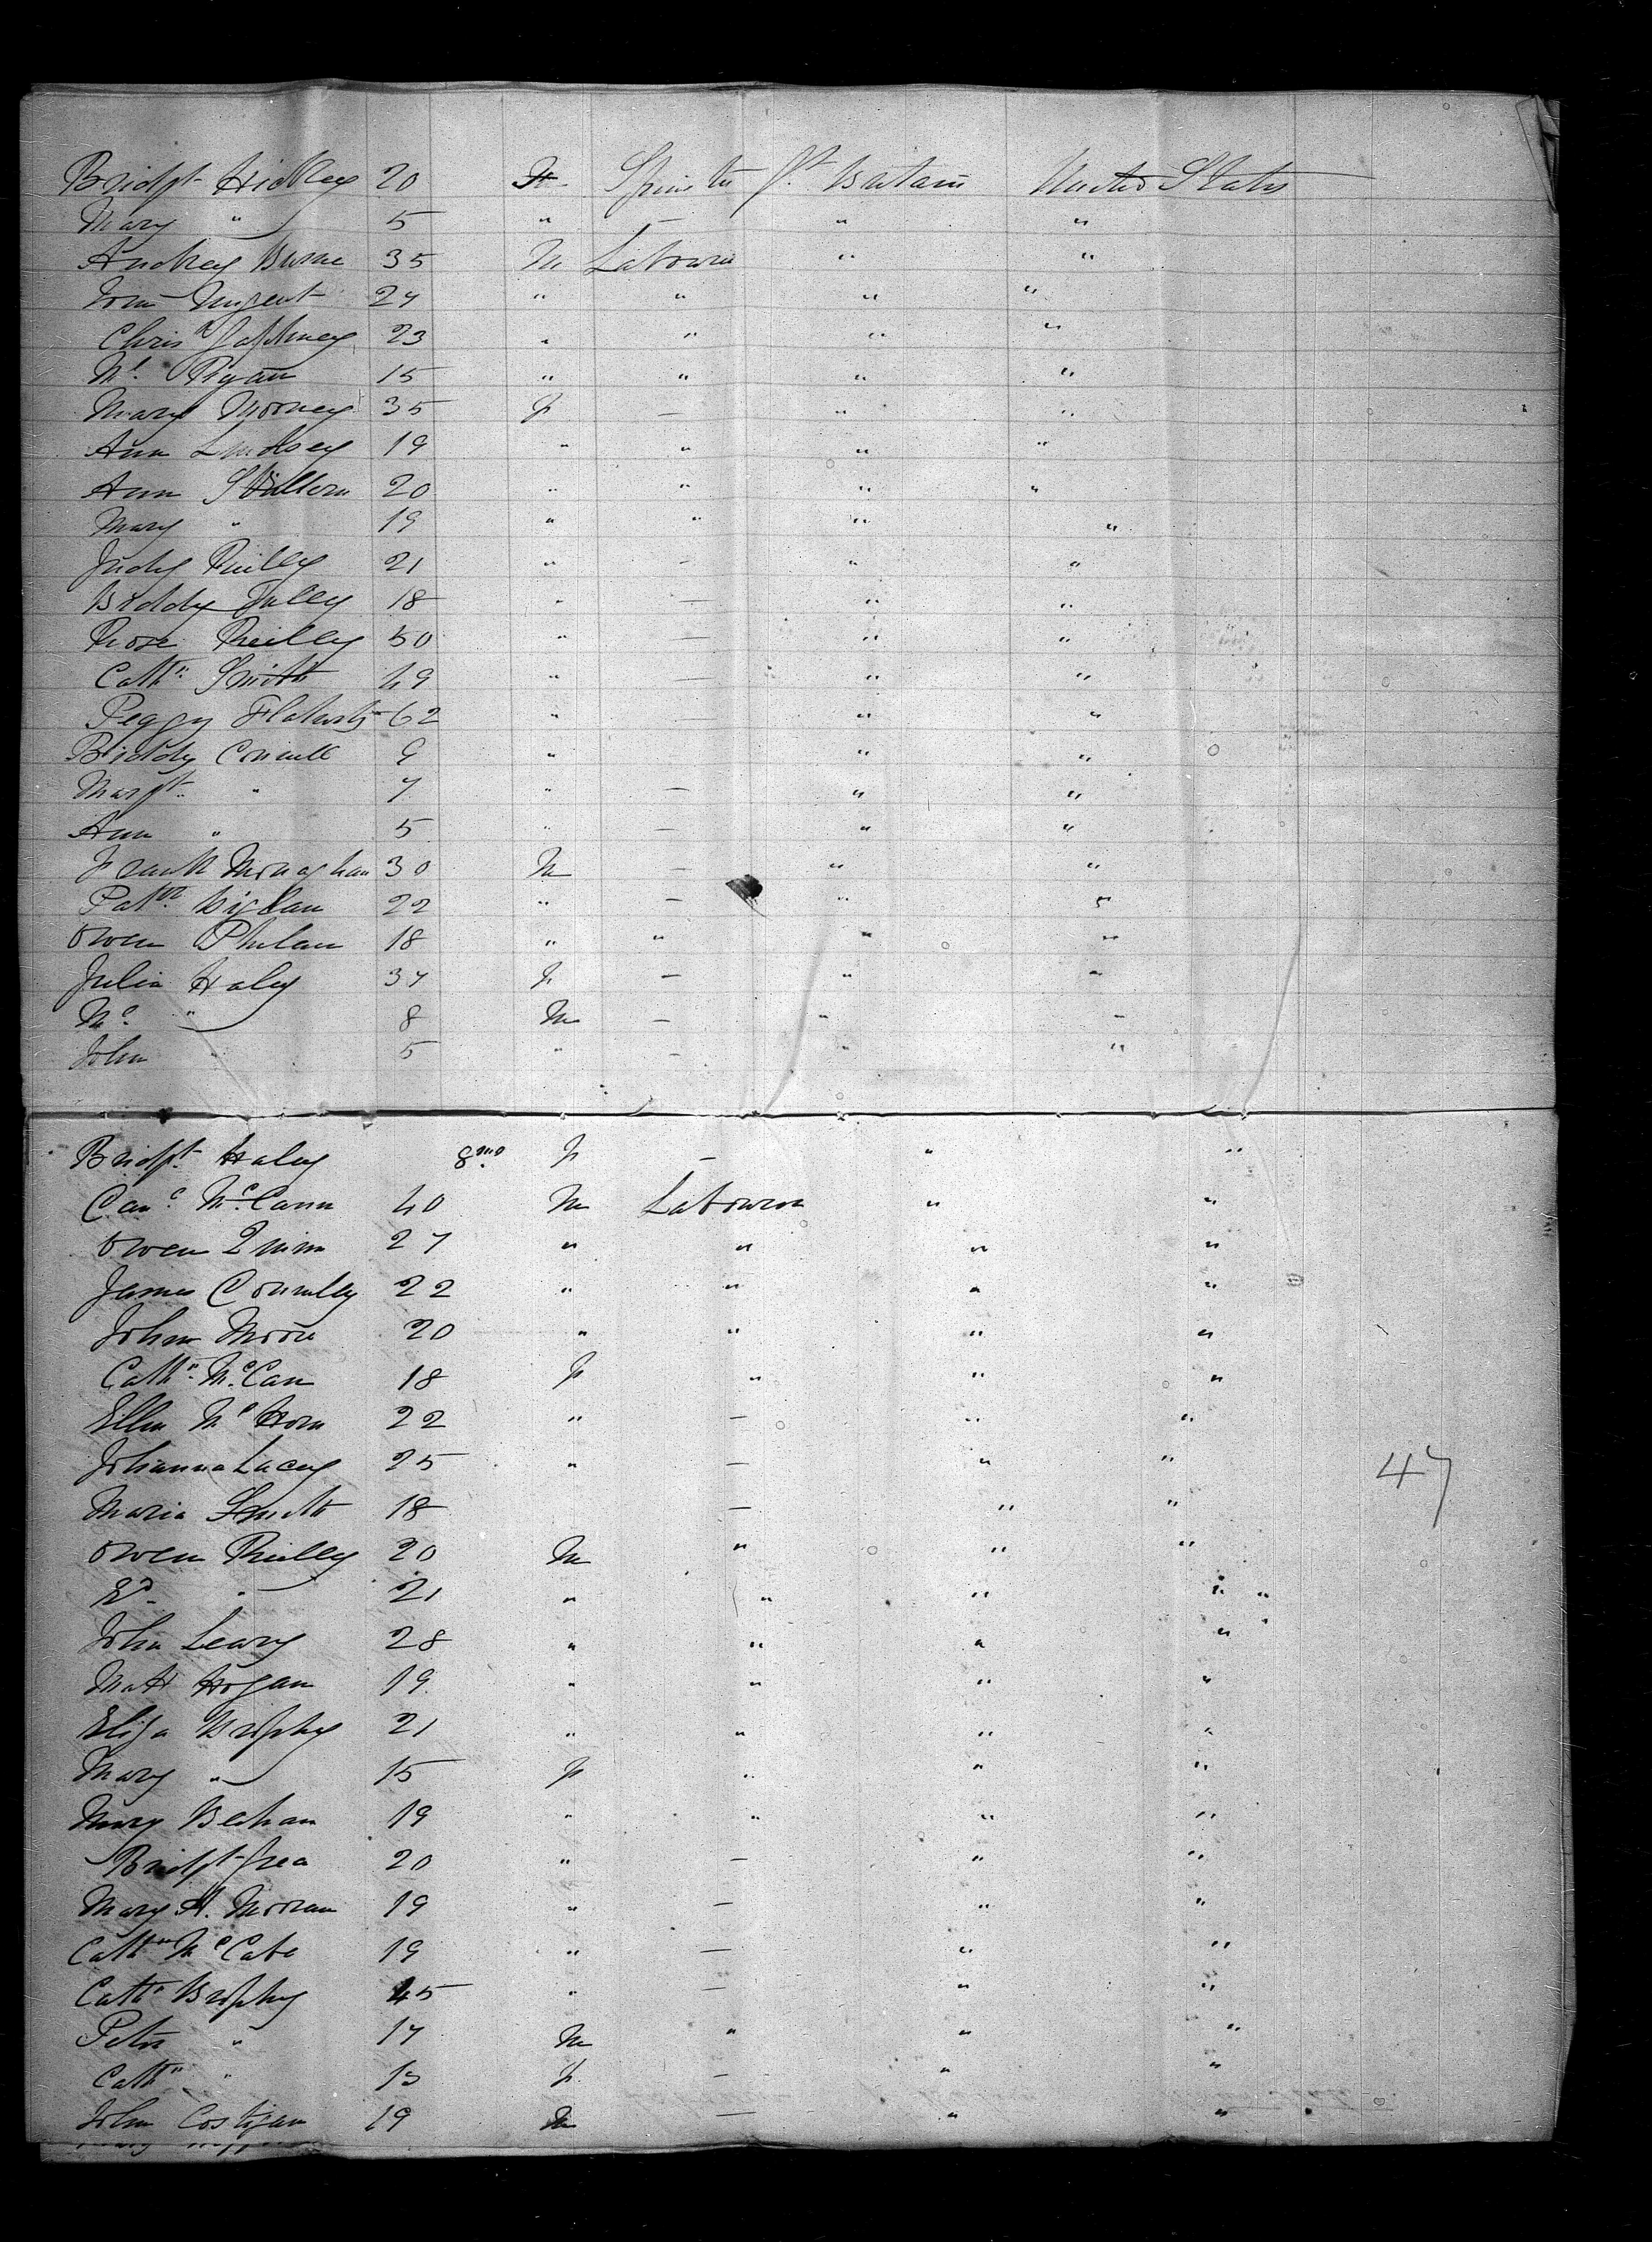 Bridgt Hickey 20 F Spinster Gt Britain United States
Mary " 5 " — " "
Andrew Burne 35 M Labourer " "
John Nugent 24 " " " "
Chrisr Gaffney 23 " " " "
Ml Ryan 15 " " " "
Mary Mooney 35 F — " "
Ann Lindsey 19 " " " "
Ann 20 " " " "
Mary " 19 " " " "
Judy Reilly 21 " — " "
Biddy Tully 18 " — " "
Rose Reilly 50 " — " "
Cathn Smith 49 " — " "
Peggy 62 " — " "
Biddy 9 " " "
Margt " 7 " — " "
Ann " 5 " — " "
Frank Monaghan 30 M — " "
Patk 22 " — " "
Owen Phelan 18 " " " "
Julia Haley 37 F — " "
Ml " 8 M — " "
John " 5 " — " "
Bridgt Haley 8mo F — " "
McCann 40 M Labourer " "
Owen Quinn 27 " " " "
James Connelly 22 " " " "
John Moore 20 " " " "
Cathn McCann 18 F " " "
Ellen 22 " — " "
Johanna Lacey 25 " — " "
Maria Smith 18 — " "
Owen Reilly 20 M " " "
Ed " 21 " " " " "
John Leary 28 " " " "
Matt Hogan 19 " " " "
Eliza Brophy 21 " " " "
Mary " 15 F " " "
Mary Behan 19 " " " "
Bridgt 20 " — " "
Mary A. Moran 19 " — " "
Cathn McCabe 19 " — " "
Cathn Brophy 45 " — " "
Peter " 17 M " " "
Cathn " 13 F — " "
John Costigan 19 M — " "
47